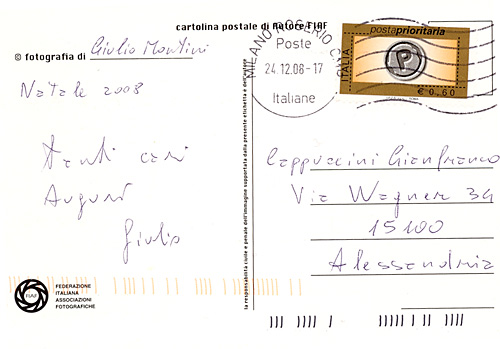 cartolina postale di Autore FIAF
© fotografia di Giulio Montini
Natale 2008
Tanti cari
Auguri
Giulio
FIAF
FEDERAZIONE
ITALIANA
ASSOCIAZIONI
FOTOGRAFICHE
la responsabilità civile e penale dell'immagine supportata dalla presente etichetta è dell'autore
MILANO ROSERIO C.M.P.
Poste
24.12.08-17
Italiane
postaprioritaria
ITALIA
P
€ 0,60
Cappuccini Gianfranco
Via Wagner 34
15100
Alessandria